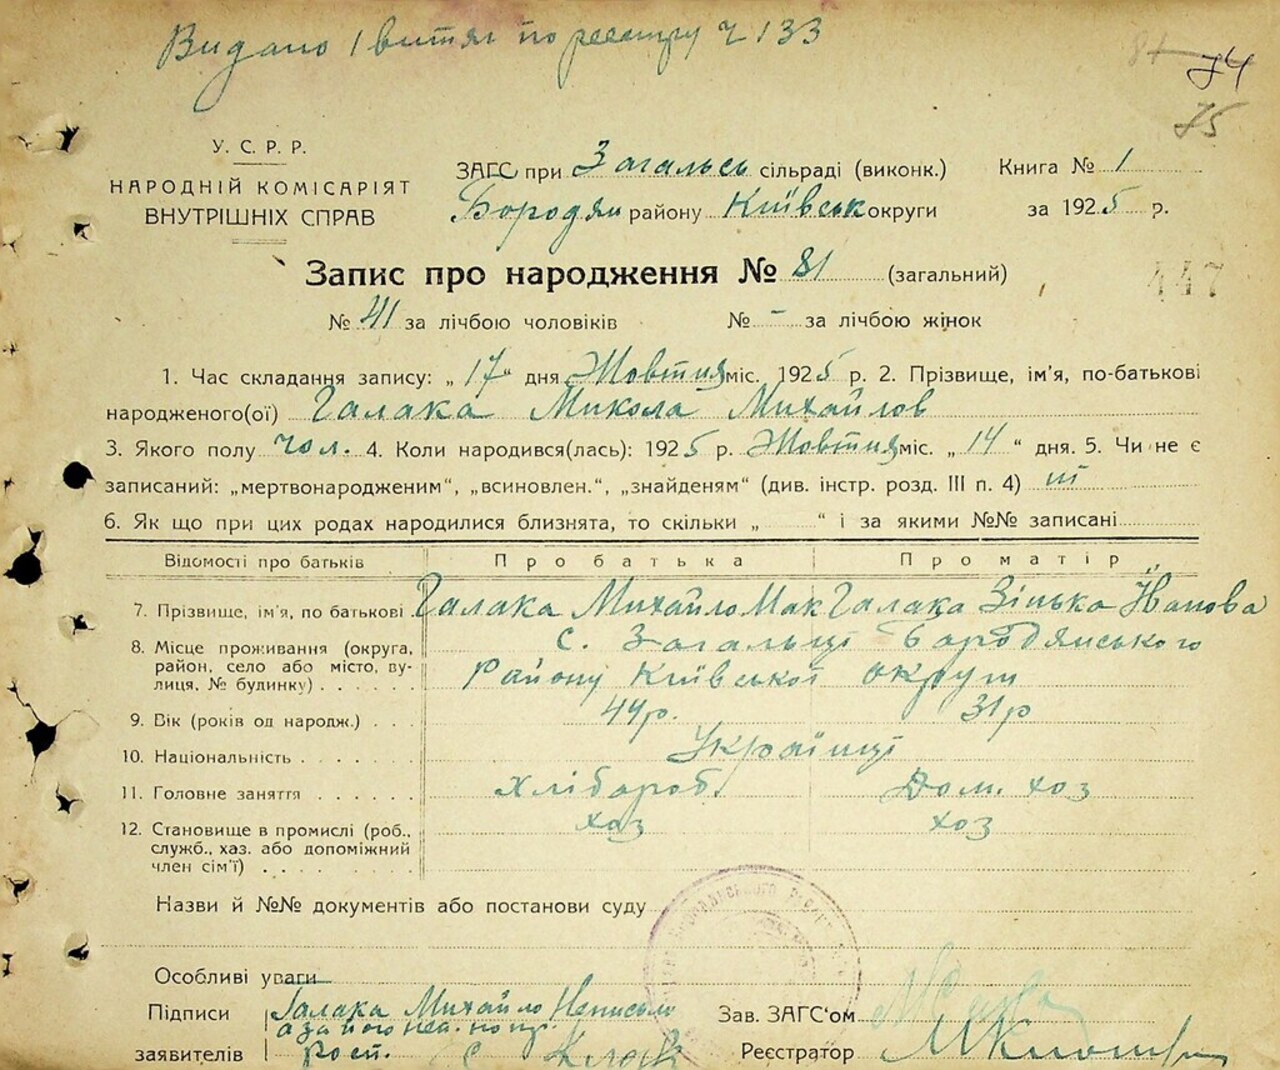 Видано 1 витяг по реєстру ч 133
81 74
75
У. С. Р. Р.
НАРОДНІЙ КОМІСАРІЯТ
ВНУТРІШНІХ СПРАВ
ЗАГС при Загальсь сільраді (виконк.) Книга № 1
Бородян району Київськ округи за 1925 р.
Запис про народження № 81 (загальний)
447
№ 41 за лічбою чоловіків № - за лічбою жінок
1. Час складання запису: „17“ дня Жовтня міс. 1925 р. 2. Прізвище, ім'я, по-батькові
народженого(ої) Галака Микола Михайлов
3. Якого полу чол. 4. Коли народився(лась): 1925 р. Жовтня міс. „14“ дня. 5. Чи не є
записаний: „мертвонародженим“, „всиновлен.“, „знайденям“ (див. інстр. розд. III п. 4) ні
6. Як що при цих родах народилися близнята, то скільки „ “ і за якими №№ записані
Відомості про батьків Про батька Про матір
7. Прізвище, ім'я, по батькові Галака Михайло Мак Галака Зінька Іванова
8. Місце проживання (округа, район, село або місто, вулиця, № будинку) с. Загальці Бородянського
району Київської округи
9. Вік (років од народж.) 44р. 31р
10. Національність Українці
11. Головне заняття хлібороб. Дом. хоз
12. Становище в промислі (роб., служб., хаз. або допоміжний член сім'ї) хаз хоз
Назви й №№ документів або постанови суду
Особливі уваги
Підписи Галака Михайло Неписьм
а за його
заявителів рост.
Зав. ЗАГС'ом
Реєстратор